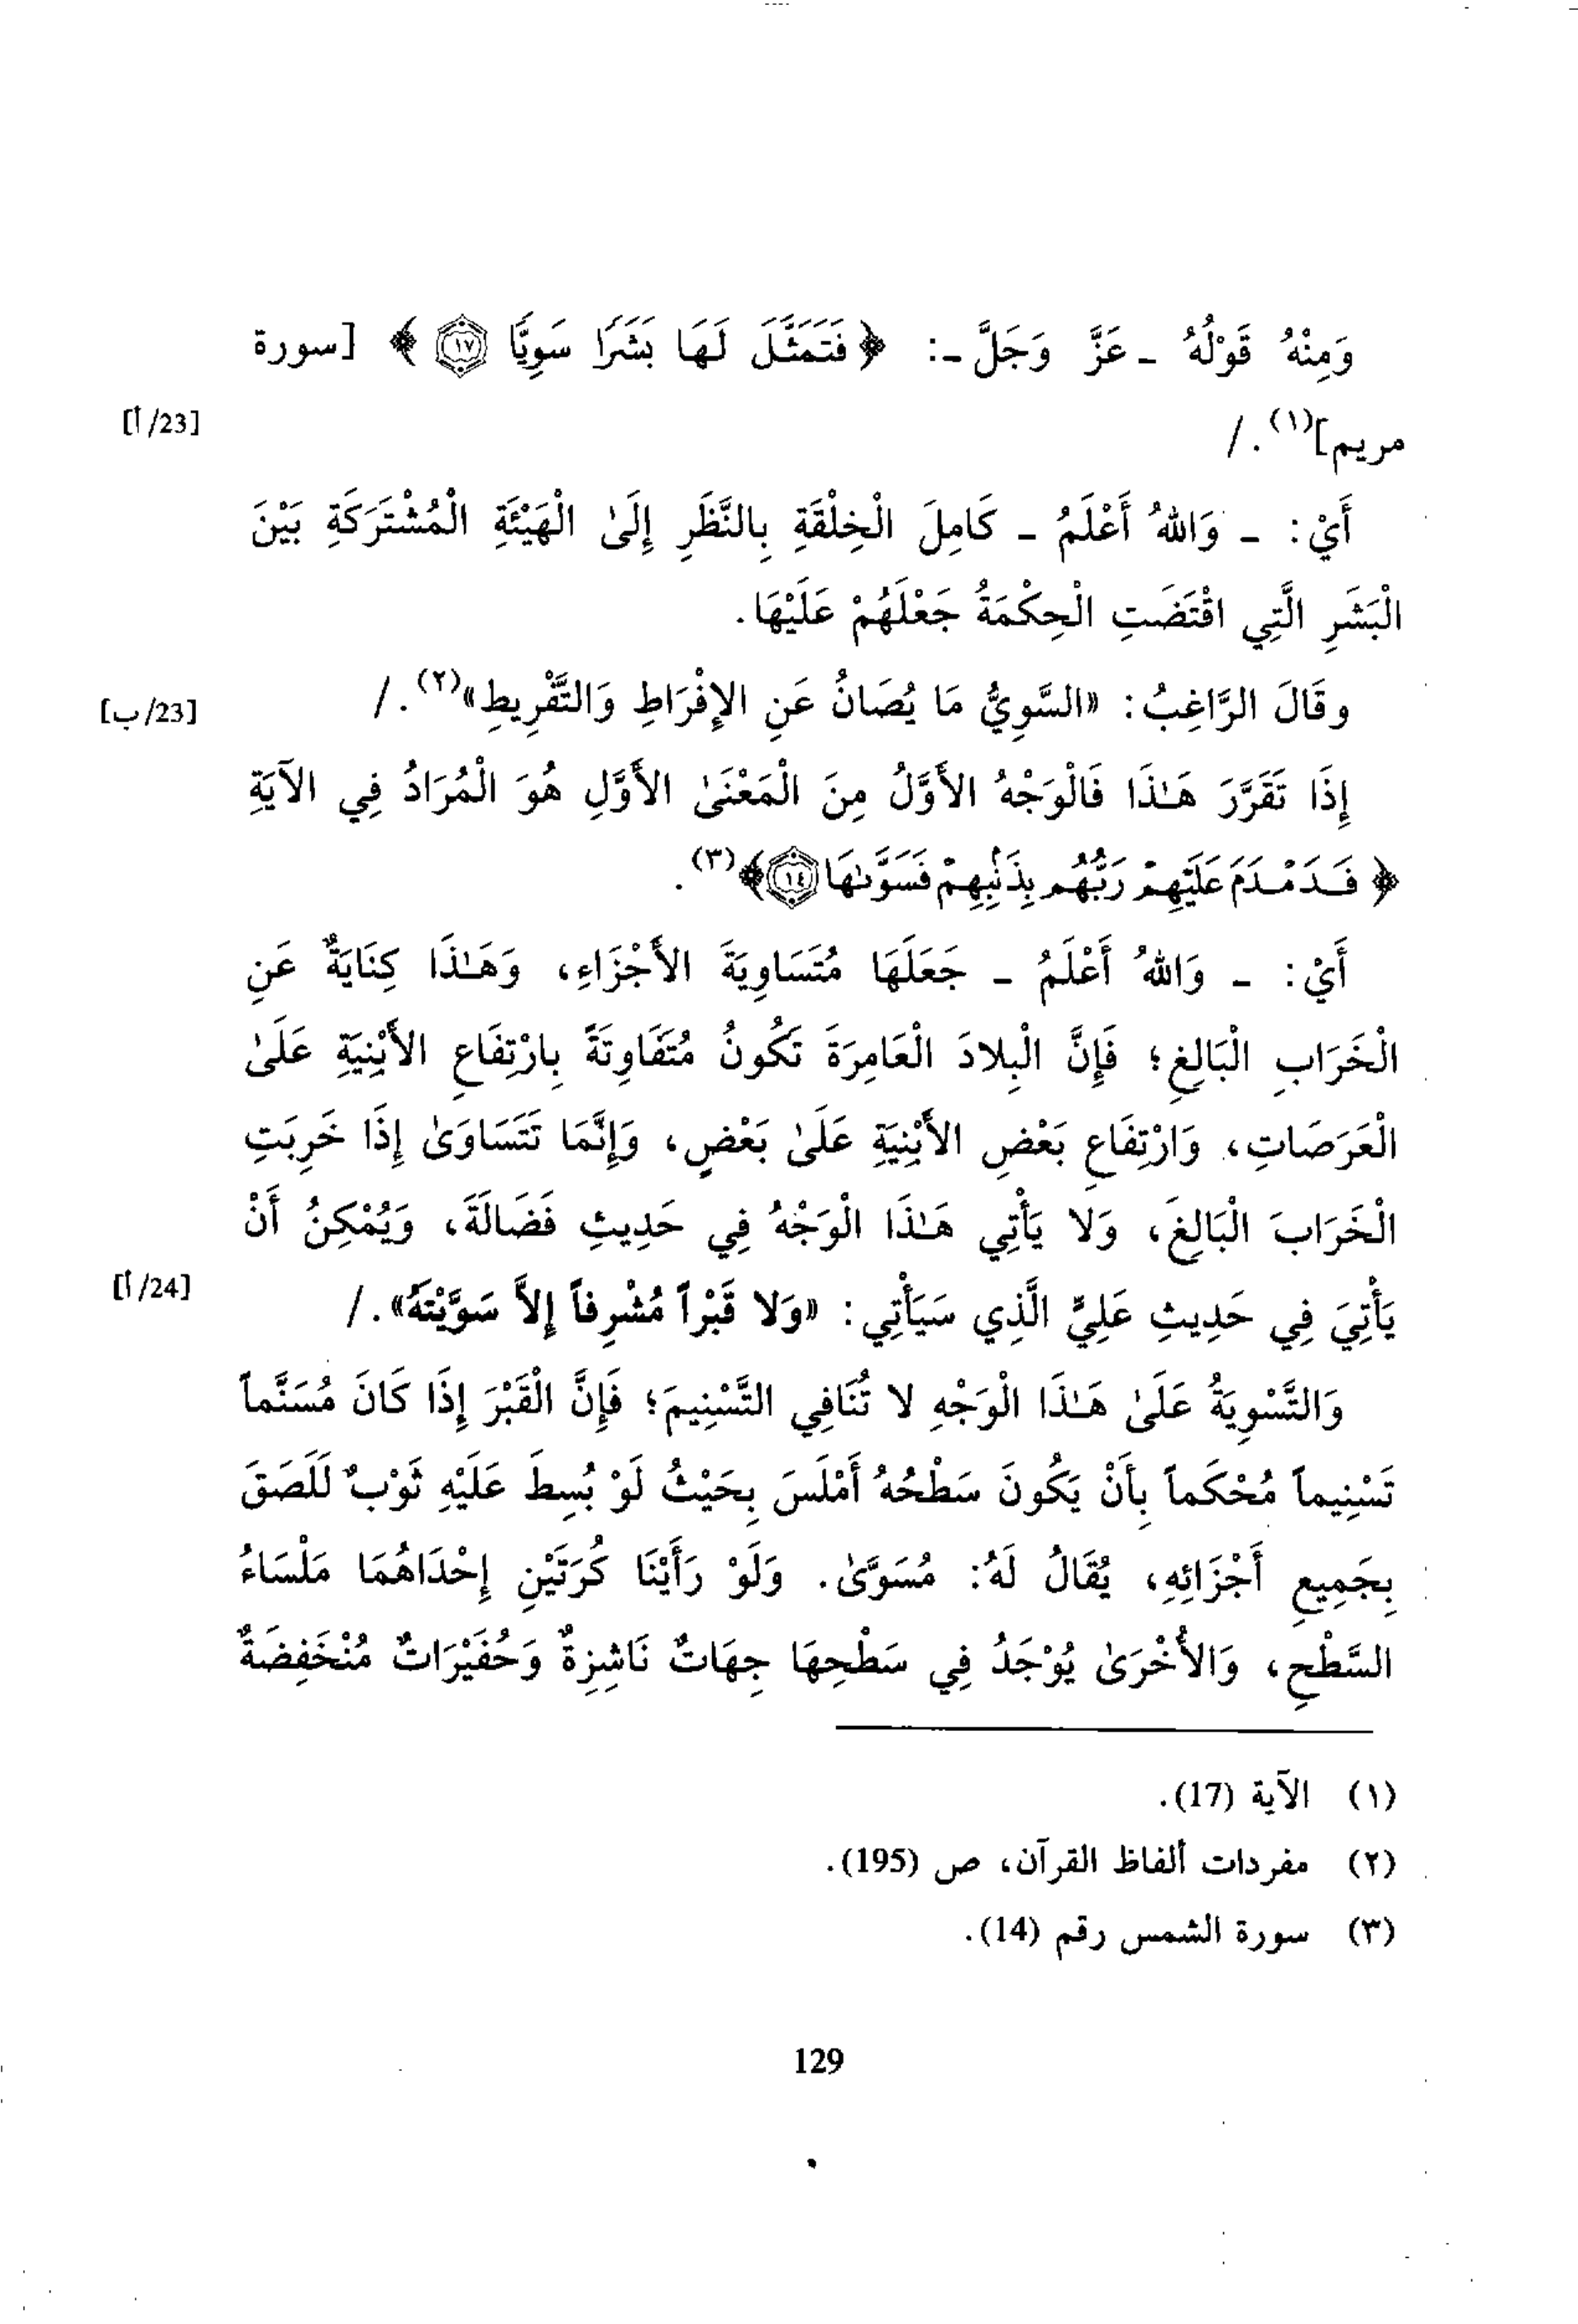 وَمِنْهُ قَوْلُهُ ـ عَزَّ وَجَلَّ ـ: ﴿فَتَمَثَّلَ لَهَا بَشَرًا سَوِيًّا ١٧﴾ [سورة
مريم](١). /
[23/أ]
أَيْ: ـ وَاللهُ أَعْلَمُ ـ كَامِلَ الْخِلْقَةِ بِالنَّظَرِ إِلَىٰ الْهَيْئَةِ الْمُشْتَرَكَةِ بَيْنَ
الْبَشَرِ الَّتِي اقْتَضَتِ الْحِكْمَةُ جَعْلَهُمْ عَلَيْهَا.
وقَالَ الرَّاغِبُ: «السَّوِيُّ مَا يُصَانُ عَنِ الإِفْرَاطِ وَالتَّفْرِيطِ»(٢). /
[23/ب]
إِذَا تَقَرَّرَ هَـٰذَا فَالْوَجْهُ الأَوَّلُ مِنَ الْمَعْنَىٰ الأَوَّلِ هُوَ الْمُرَادُ فِي الآيَةِ
﴿فَدَمْدَمَ عَلَيْهِمْ رَبُّهُم بِذَنۢبِهِمْ فَسَوَّىٰهَا ١٤﴾(٣).
أَيْ: ـ وَاللهُ أَعْلَمُ ـ جَعَلَهَا مُتَسَاوِيَةَ الأَجْزَاءِ، وَهَـٰذَا كِنَايَةٌ عَنِ
الْخَرَابِ الْبَالِغِ؛ فَإِنَّ الْبِلادَ الْعَامِرَةَ تَكُونُ مُتَفَاوِتَةً بِارْتِفَاعِ الأَبْنِيَةِ عَلَىٰ
الْعَرَصَاتِ، وَارْتِفَاعِ بَعْضِ الأَبْنِيَةِ عَلَىٰ بَعْضٍ، وَإِنَّمَا تَتَسَاوَىٰ إِذَا خَرِبَتِ
الْخَرَابَ الْبَالِغَ، وَلا يَأْتِي هَـٰذَا الْوَجْهُ فِي حَدِيثِ فَضَالَةَ، وَيُمْكِنُ أَنْ
يَأْتِيَ فِي حَدِيثِ عَلِيٍّ الَّذِي سَيَأْتِي: «وَلا قَبْراً مُشْرِفاً إِلاَّ سَوَّيْتَهُ». /
[24/أ]
وَالتَّسْوِيَةُ عَلَىٰ هَـٰذَا الْوَجْهِ لا تُنَافِي التَّسْنِيمَ؛ فَإِنَّ الْقَبْرَ إِذَا كَانَ مُسَنَّماً
تَسْنِيماً مُحْكَماً بِأَنْ يَكُونَ سَطْحُهُ أَمْلَسَ بِحَيْثُ لَوْ بُسِطَ عَلَيْهِ ثَوْبٌ لَلَصَقَ
بِجَمِيعِ أَجْزَائِهِ، يُقَالُ لَهُ: مُسَوَّىٰ. وَلَوْ رَأَيْنَا كُرَتَيْنِ إِحْدَاهُمَا مَلْسَاءُ
السَّطْحِ، وَالأُخْرَىٰ يُوْجَدُ فِي سَطْحِهَا جِهَاتٌ نَاشِزِةٌ وَحُفَيْرَاتٌ مُنْخَفِضَةٌ
(١) الآية (17).
(٢) مفردات ألفاظ القرآن، ص (195).
(٣) سورة الشمس رقم (14).
129